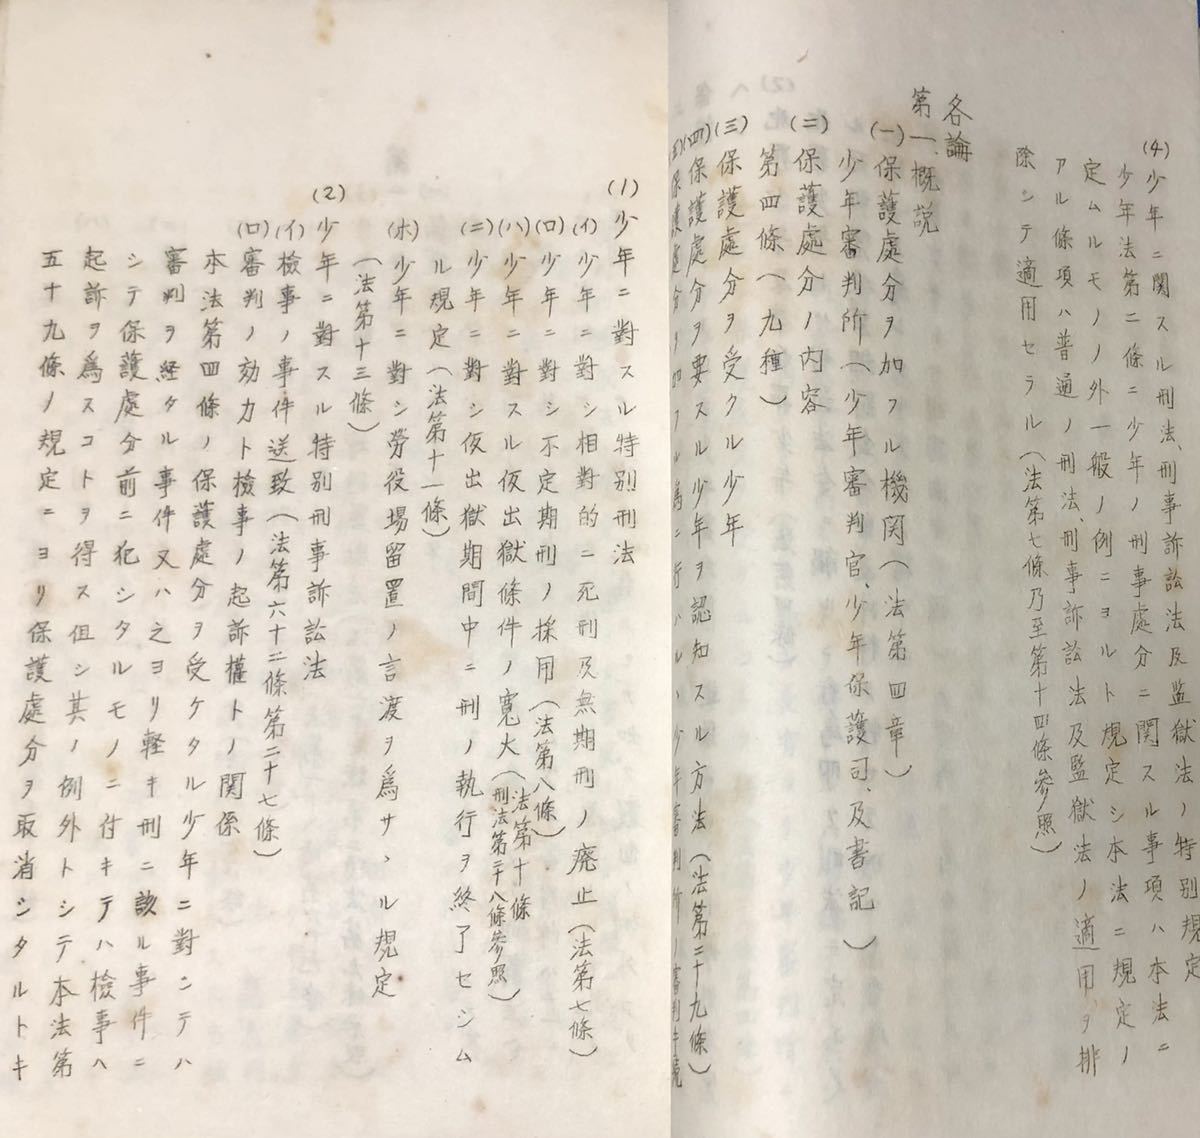 (4)少年ニ関スル刑法、刑事訴訟法及監獄法ノ特別規定
少年法第二條ニ少年ノ刑事處分ニ関スル事項ハ本法ニ
定ムルモノノ外一般ノ例ニヨルト規定シ本法ニ規定ノ
アル條項ハ普通ノ刑法、刑事訴訟法及監獄法ノ適用ヲ排
除シテ適用セラル(法第七條乃至第十四條參照)
各論
第一、概説
(一)保護處分ヲ加フル機関(法第四章)
少年審判所(少年審判官、少年保護司、及書記)
(二)保護處分ノ内容
第四條(九種)
(三)保護處分ヲ受クル少年
(四)保護處分ヲ要スル少年ヲ認知スル方法(法第二十九條)
(五)保護處分ヲ加フル為ニ行ハルヽ少年審判所ノ審判手續
(1)少年ニ對スル特別刑法
(イ)少年ニ對シ相對的ニ死刑及無期刑ノ廃止(法第七條)
(ロ)少年ニ對シ不定期刑ノ採用(法第八條)
(ハ)少年ニ對スル仮出獄條件ノ寛大(法第十條 刑法第二十八條參照)
(ニ)少年ニ對シ仮出獄期間中ニ刑ノ執行ヲ終了セシム
ル規定(法第十一條)
(ホ)少年ニ對シ勞役場留置ノ言渡ヲ爲サヽル規定
(法第十三條)
(2)少年ニ對スル特別刑事訴訟法
(イ)檢事ノ事件送致(法第六十二條第二十七條)
(ロ)審判ノ効力ト檢事ノ起訴權トノ関係
本法第四條ノ保護處分ヲ受ケタル少年ニ對シテハ
審判ヲ経タル事件又ハ之ヨリ軽キ刑ニ該ル事件ニ
シテ保護處分前ニ犯シタルモノニ付キテハ檢事ヘ
起訴ヲ爲スコトヲ得ス但シ其ノ例外トシテ本法第
五十九條ノ規定ニヨリ保護處分ヲ取消シタルトキ